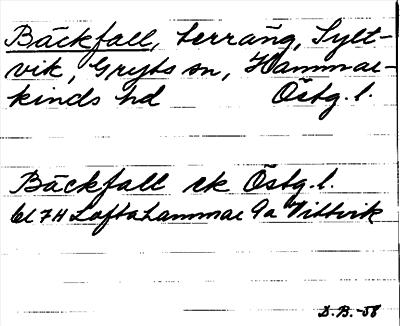 Bäckfall, terräng, Sylt-
vik, Gryts sn, Hammar-
kinds hd Östg. l.
Bäckfall rk Östg. l.
bl 7H Loftahammar 9a Vittvik
D.B. -58